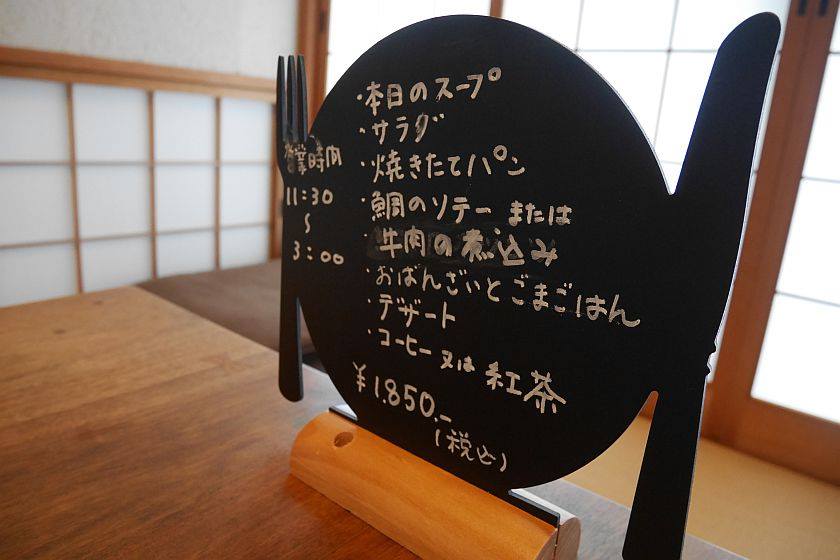 営業時間
11:30
~
3:00
・本日のスープ
・サラダ
・焼きたてパン
・鯛のソテー または
・牛肉の煮込み
・おばんざいとごまごはん
・デザート
・コーヒー又は紅茶
¥1.850.-
(税込)